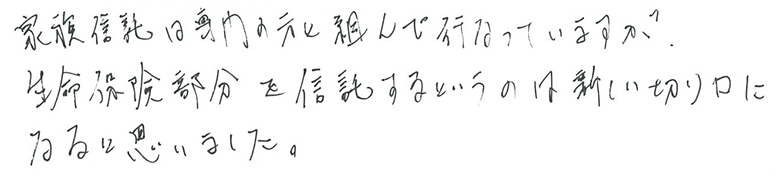 家族信託は専門の方と組んで行なっていますが、
生命保険部分を信託するというのは新しい切り口に
なると思いました。